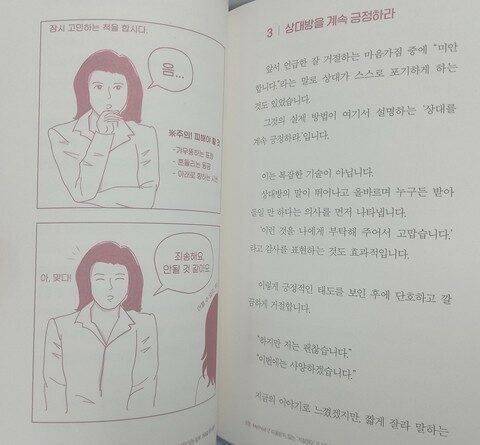 잠시 고민하는 척을 합시다.
음...
※주의! 피해야 할 것
-갸우뚱하는 표정
-흔들리는 동공
-아래로 향하는 시선
아, 맞다!
죄송해요,
안될 것 같아요.
3 | 상대방을 계속 긍정하라
앞서 언급한 잘 거절하는 마음가짐 중에 “미안
합니다.”라는 말로 상대가 스스로 포기하게 하는
것도 있었습니다.
그것의 실제 방법이 여기서 설명하는 ‘상대를
계속 긍정하라.’입니다.
이는 복잡한 기술이 아닙니다.
상대방의 말이 뛰어나고 올바르며 누구든 받아
들일 만하다는 의사를 먼저 나타냅니다.
‘이런 것을 나에게 부탁해 주어서 고맙습니다.’
라고 감사를 표현하는 것도 효과적입니다.
이렇게 긍정적인 태도를 보인 후에 단호하고 깔
끔하게 거절합니다.
“하지만 저는 괜찮습니다.”
“이번에는 사양하겠습니다.”
지금의 이야기로 느꼈겠지만, 짧게 잘라 말하는